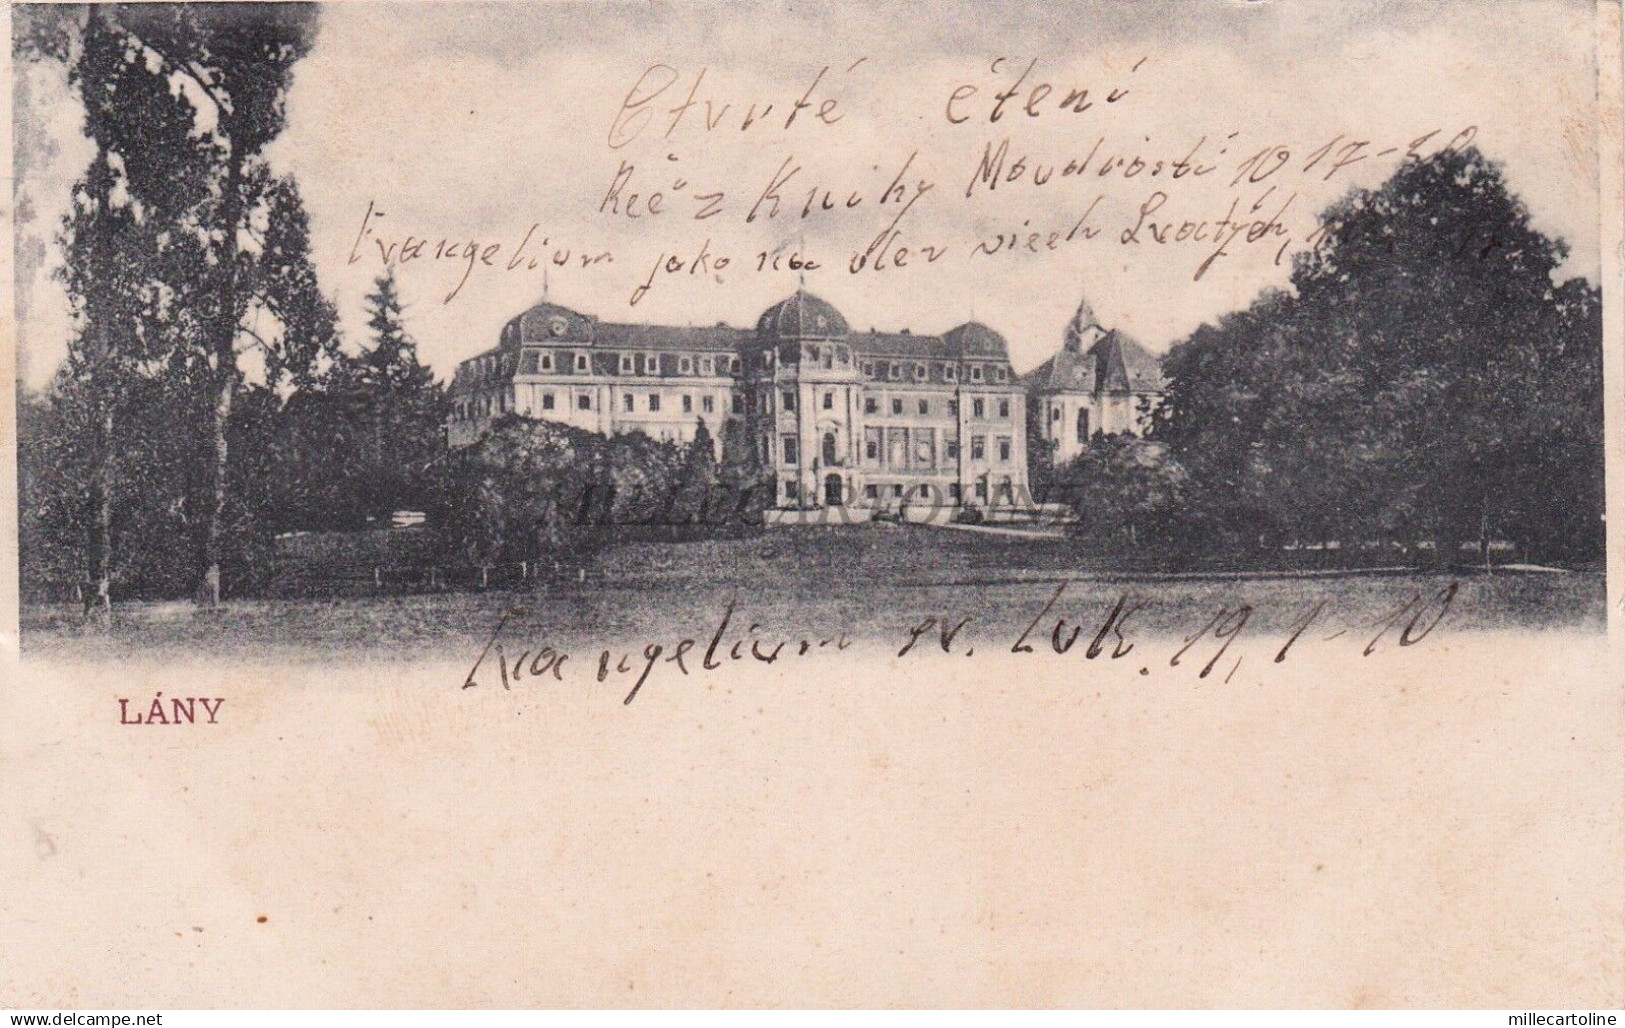 Čtvrté čtení
Řeč z Knihy Moudrosti 10 17-20
Evangelium jako na den všech Svatých,
MILLECARTOLINE
Evangelium sv. Luk. 19, 1-10
LÁNY
delcampe.net
millecartoline